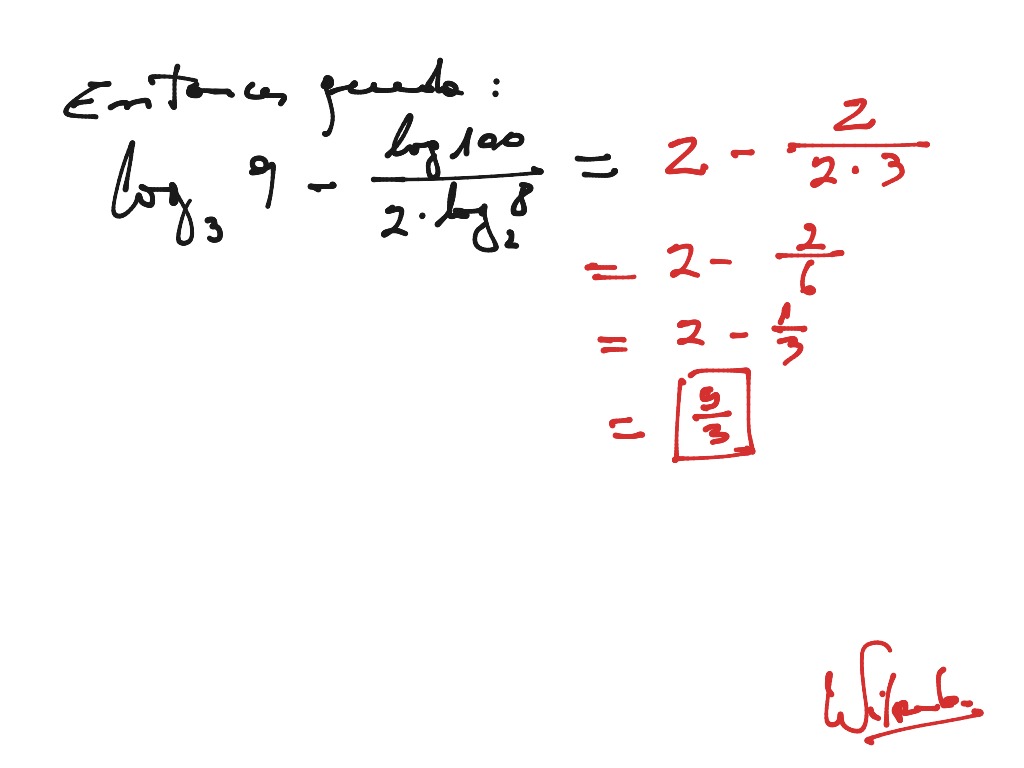 Entonces queda:
log₃ 9 - log 100 / 2 · log₂ 8 = 2 - 2 / 2 · 3
= 2 - 2/6
= 2 - 1/3
= 5/3